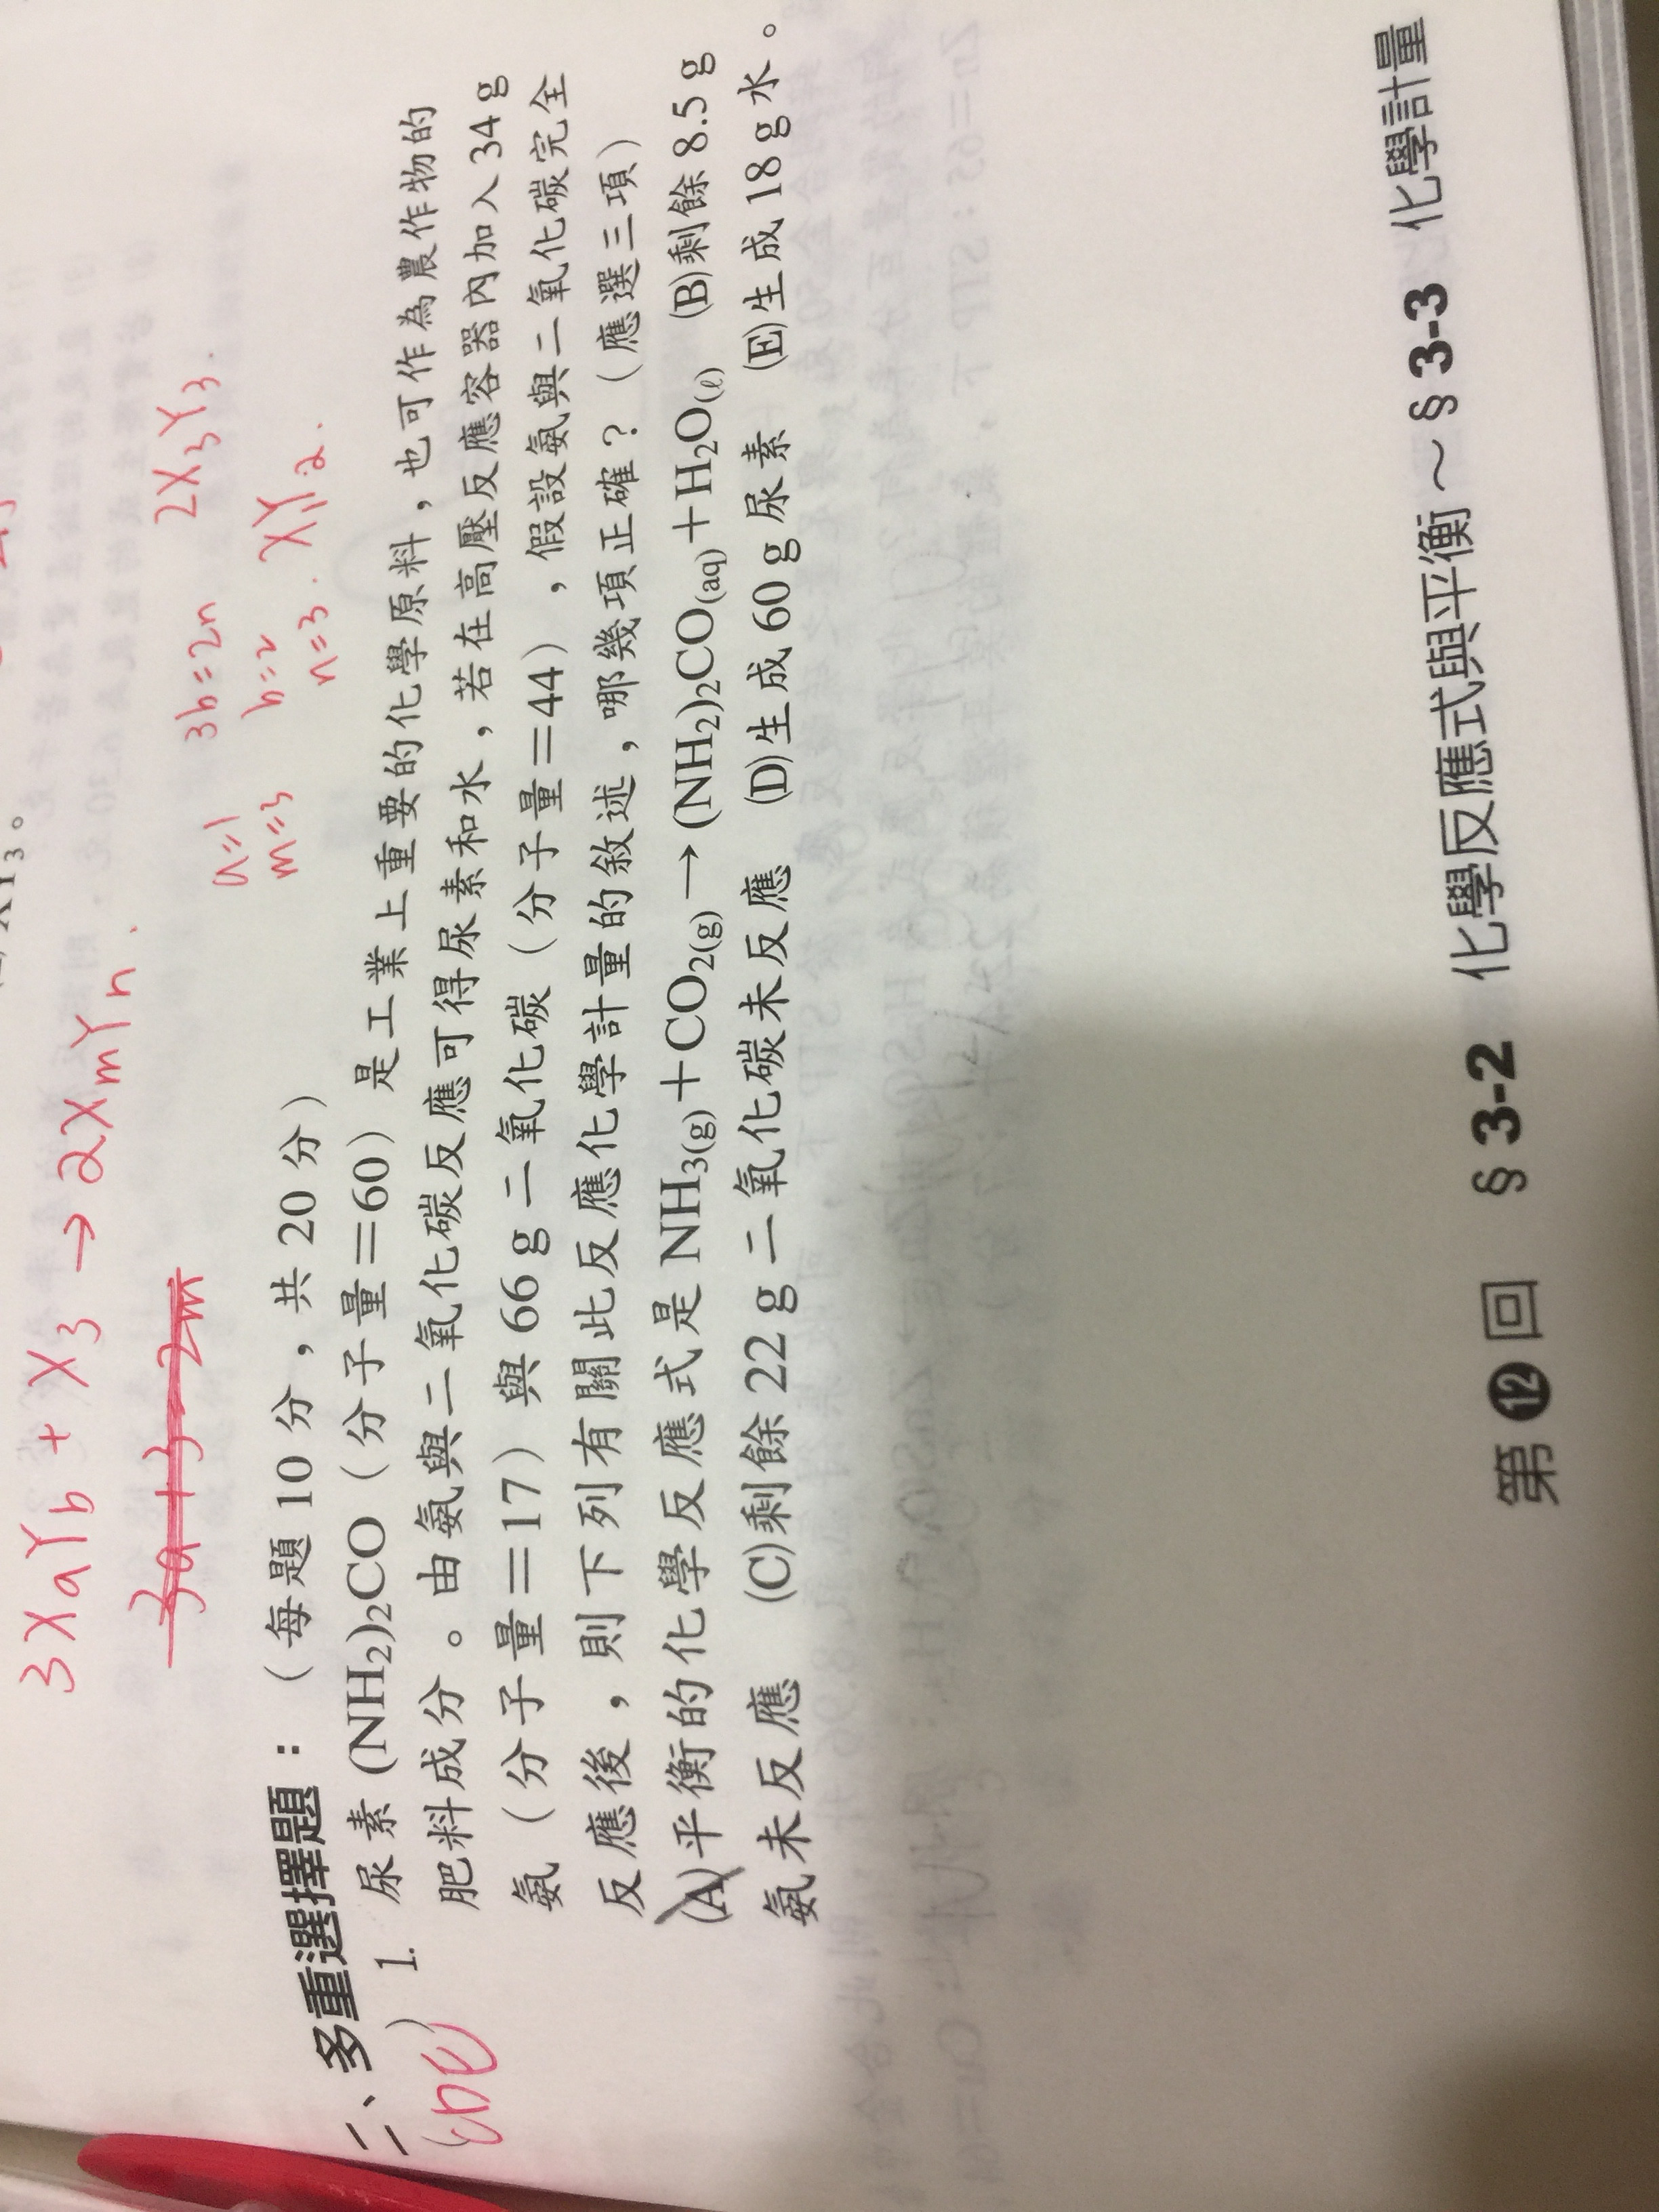 XY3。
3XaYb + X3 → 2XmYn
3a+3=2m
a=1
m=3
3b=2n
b=2
n=3.
2X3Y3.
XY2.
二、多重選擇題：（每題 10 分，共 20 分）
(CDE) 1. 尿素 (NH2)2CO（分子量＝60）是工業上重要的化學原料，也可作為農作物的
肥料成分。由氨與二氧化碳反應可得尿素和水，若在高壓反應容器內加入 34 g
氨（分子量＝17）與 66 g 二氧化碳（分子量＝44），假設氨與二氧化碳完全
反應後，則下列有關此反應化學計量的敘述，哪幾項正確？（應選三項）
(A)平衡的化學反應式是 NH3(g)＋CO2(g)→(NH2)2CO(aq)＋H2O(ℓ) (B)剩餘 8.5 g
氨未反應 (C)剩餘 22 g 二氧化碳未反應 (D)生成 60 g 尿素 (E)生成 18 g 水。
第 12 回 § 3-2 化學反應式與平衡～§ 3-3 化學計量